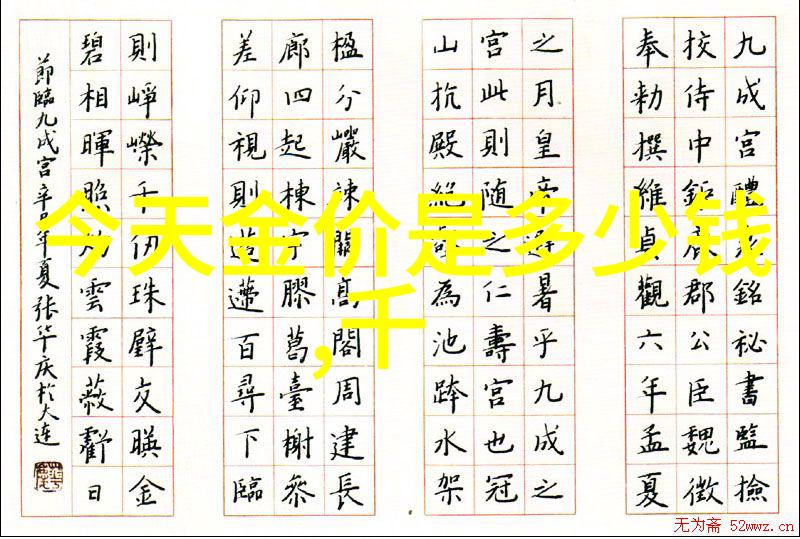 九成宫醴泉銘秘書監撿
挍侍中鉅鹿郡公臣魏徵
奉勅撰維貞觀六年孟夏
之月皇帝避暑乎九成之
宫此則随之仁壽宫也冠
山抗殿絕壑為池跨水架
楹分巖竦闕高閣周建長
廊四起棟宇膠葛臺榭叅
差仰視則迢遰百尋下臨
則崢嶸千仞珠璧交暎金
碧相暉照灼雲霞蔽虧日
節臨九成宫辛巳年夏张华庆於大连
今天金价是多少钱
,千
无为斋 52wwz.cn